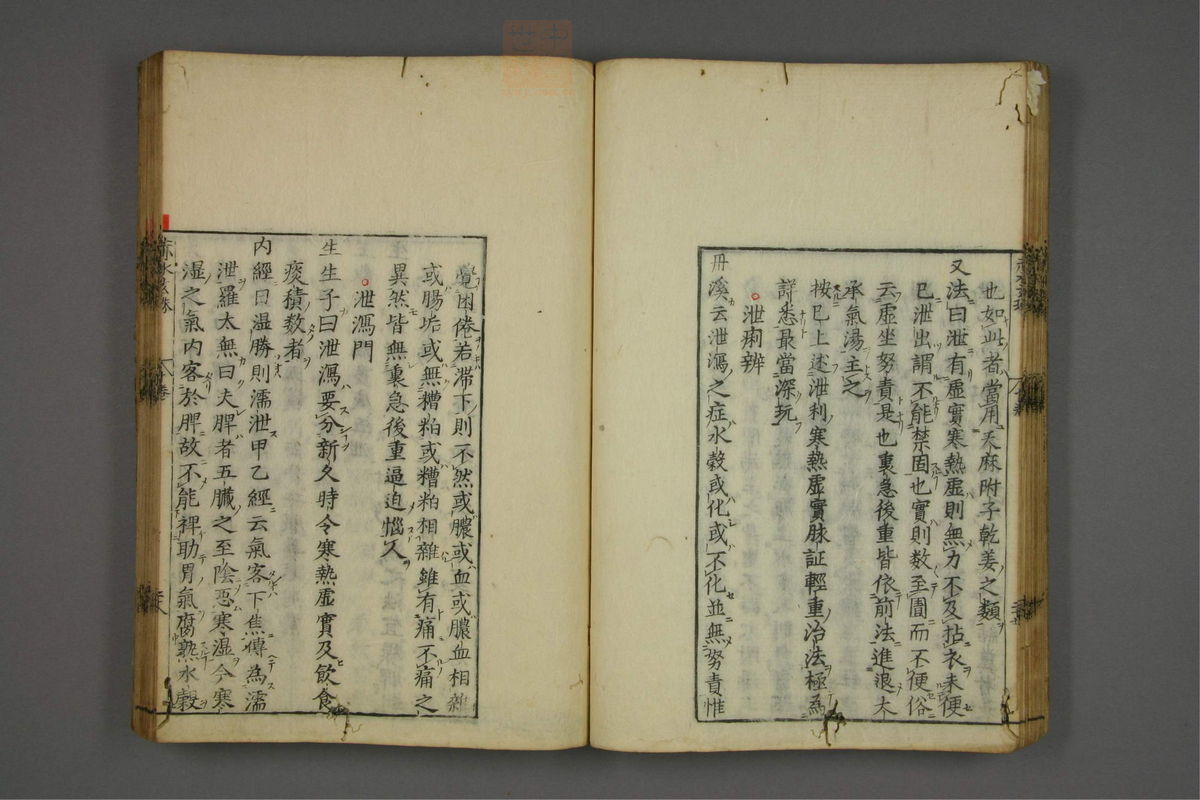 也如此者當用天麻附子乾姜之類
又法曰泄有虛實寒熱虛則無力不及拈衣未便
已泄出謂不能禁固也實則数至圊而不便俗
云虛坐努責是也裏急後重皆依前法進退大
承氣湯主之
按已上述泄利寒熱虛實脉証輕重治法極為
詳悉最當深玩
泄痢辨
丹溪云泄瀉之症水穀或化或不化並無努責惟
覺困倦若滞下則不然或膿或血或膿血相雜
或腸垢或無糟粕或糟粕相雜雖有痛不痛之
異然皆無裏急後重逼迫惱人
泄瀉門
生生子曰泄瀉要分新久時令寒熱虛實及飲食
痰積数者
内經曰湿勝則濡泄甲乙經云氣客下焦傳為濡
泄羅太無曰夫脾者五臟之至陰惡寒湿今寒
湿之氣内客於脾故不能裨助胃氣腐熟水穀